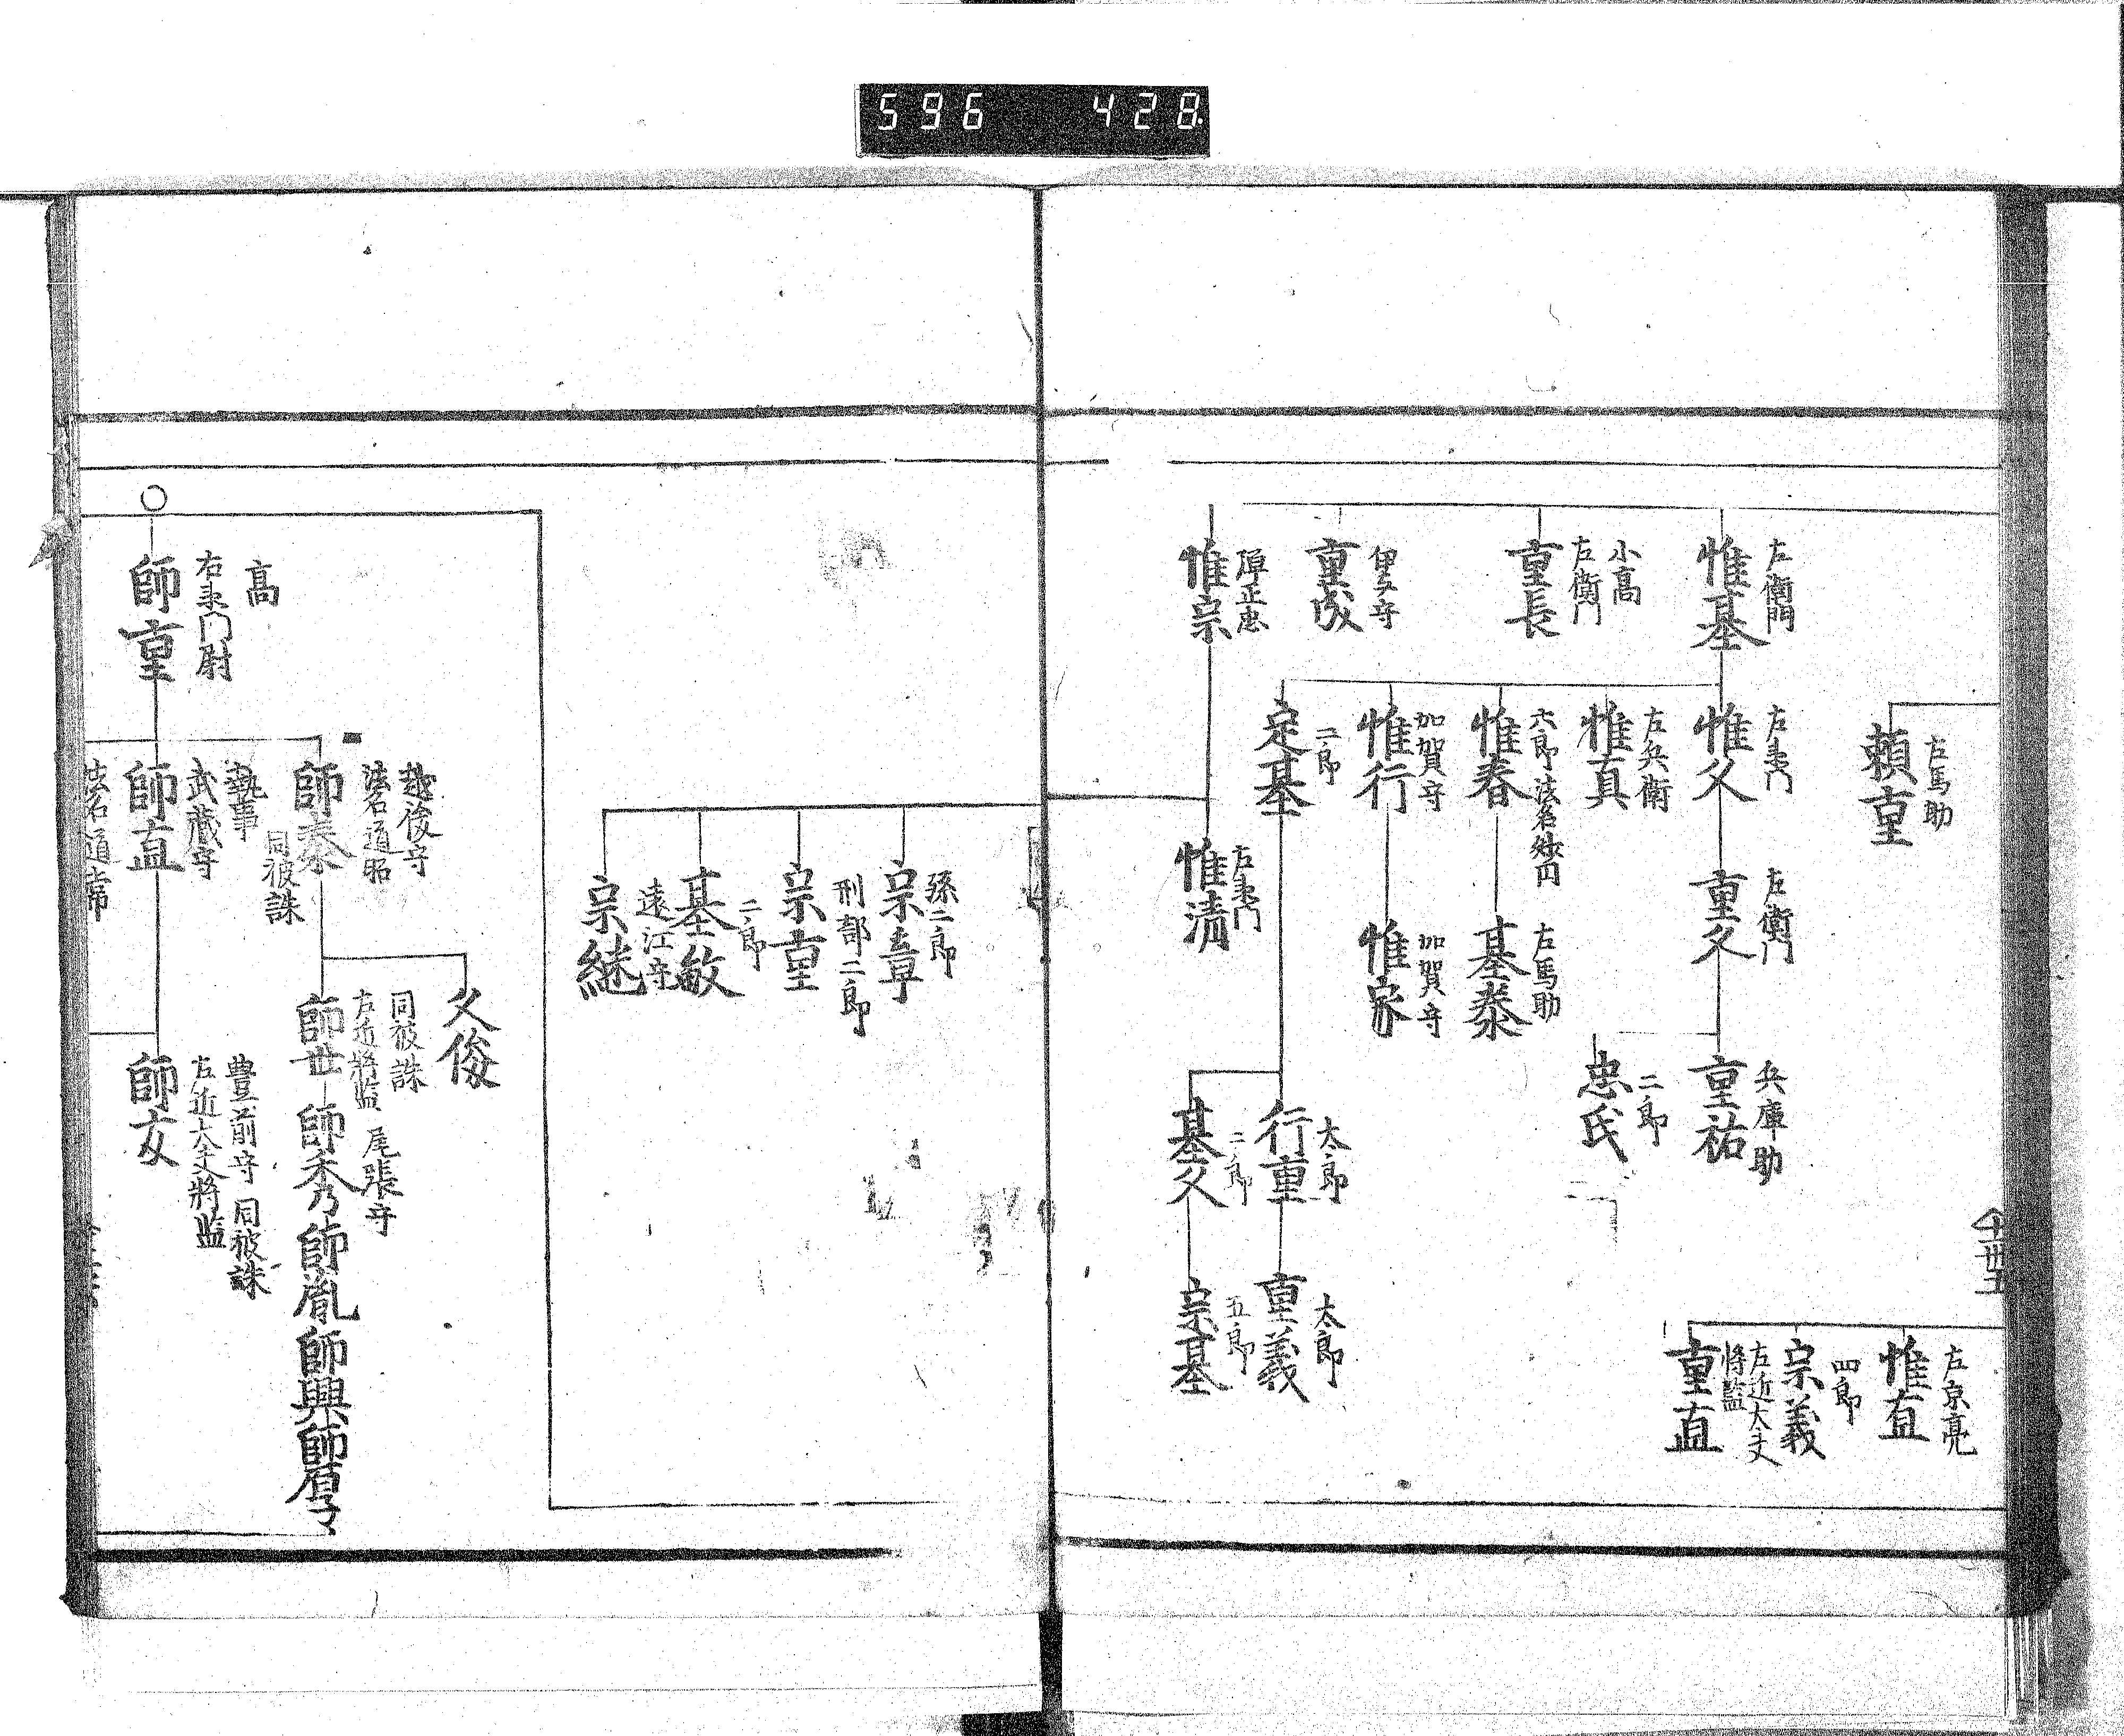 596 428
左馬助
頼重
左京亮
惟直
四郎
宗義
左近大夫
将監
重直
左衛門
惟基
小高
左衛門
重長
伊与守
重成
弾正忠
惟宗
左衛門
惟久
左兵衛
惟真
六郎法名妙円
惟春
加賀守
惟行
二郎
定基
左衛門
重久
左馬助
基泰
加賀守
惟家
左衛門
惟清
兵庫助
重祐
二郎
忠氏
太郎
行重
二郎
基久
太郎
重義
五郎
宗基
孫二郎
宗章
刑部二郎
宗重
二郎
基敏
遠江守
宗継
高
右衛門尉
師重
越後守
法名道昭
師泰
同被誅
執事
武蔵守
師直
法名道常
久俊
同被誅
左近将監
師世
尾張守
師秀
師胤
師興
豊前守 同被誅
左近大夫将監
師友